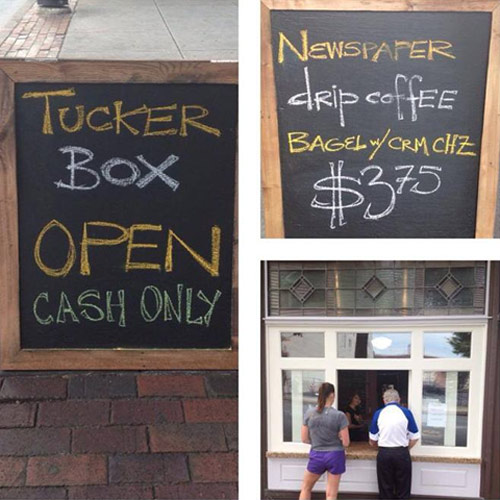 TUCKER
BOX
OPEN
CASH ONLY
NEWSPAPER
drip coffEE
BAGEL w/ CRM CHZ
$3.75